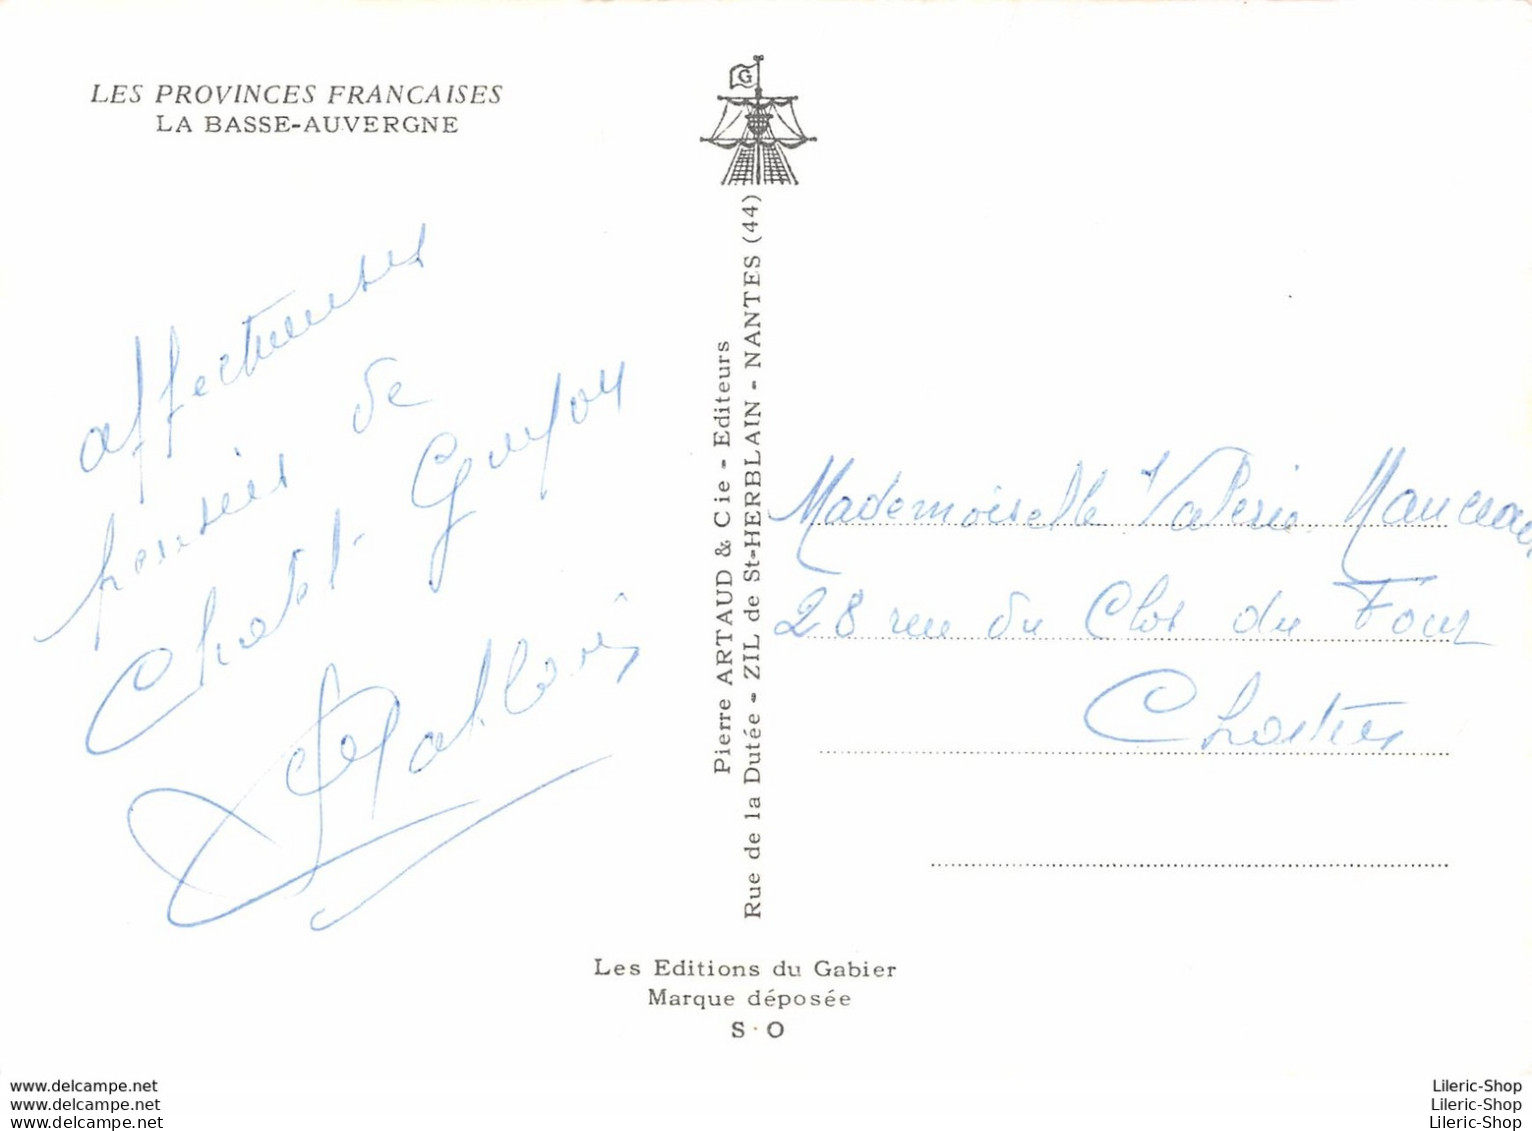 LES PROVINCES FRANCAISES
LA BASSE-AUVERGNE
G
affectueuses
pensées de
Chatel-Guyon
Pierre ARTAUD & Cie - Editeurs
Rue de la Dutée - ZIL de St-HERBLAIN - NANTES (44)
Mademoiselle Valérie
28 rue du Clos du Four
Les Editions du Gabier
Marque déposée
S·O
www.delcampe.net
www.delcampe.net
www.delcampe.net
Lileric-Shop
Lileric-Shop
Lileric-Shop